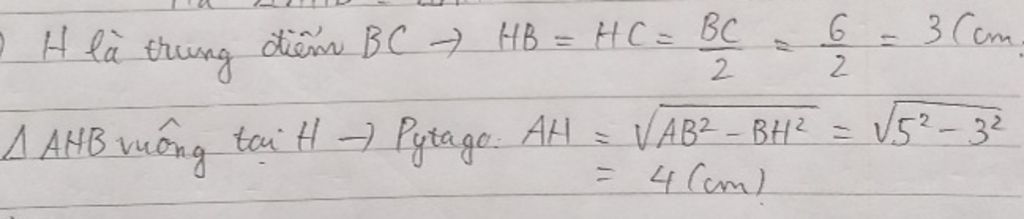 ) H là trung điểm BC → HB = HC = BC/2 = 6/2 = 3 (cm)
Δ AHB vuông tại H → Pytago: AH = √(AB² - BH²) = √(5² - 3²)
= 4 (cm)